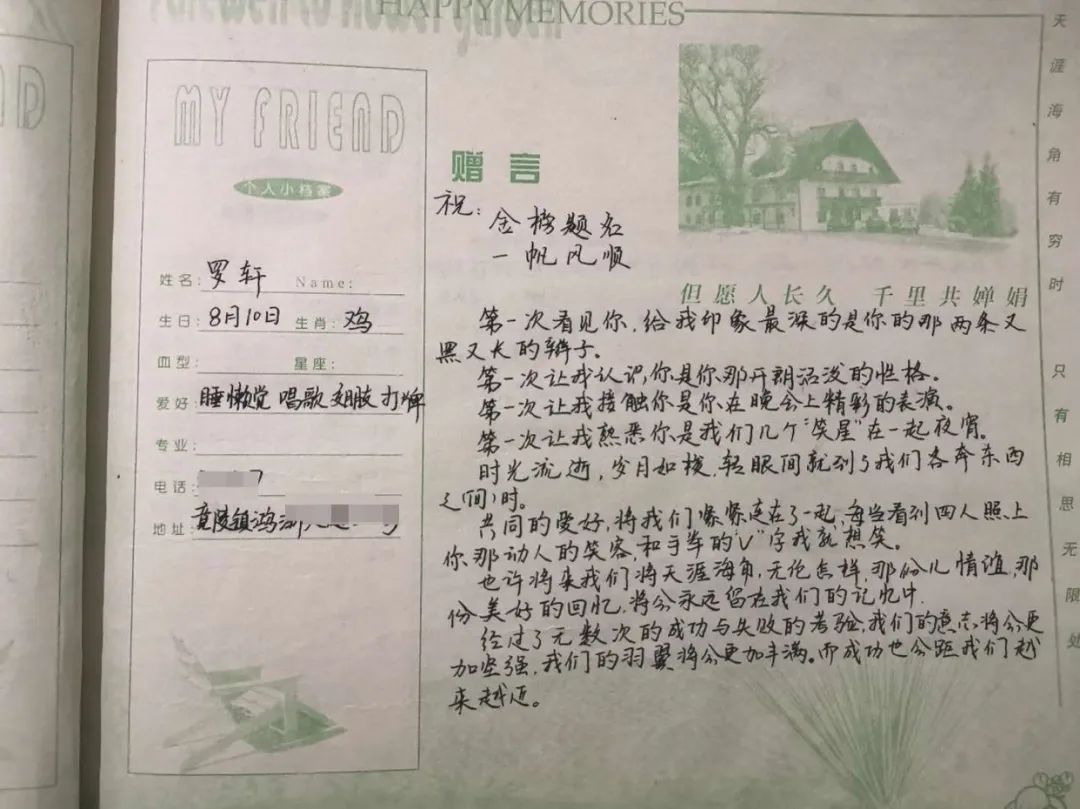 HAPPY MEMORIES
MY FRIEND
个人小档案
姓名: 罗轩 Name:
生日: 8月10日 生肖: 鸡
血型: 星座:
爱好: 睡懒觉 唱歌 翻肢 打牌
专业:
电话: 7
地址: 竟陵镇鸿
赠言
祝: 金榜题名
一帆风顺
但愿人长久 千里共婵娟
第一次看见你,给我印象最深的是你的那两条又
黑又长的辫子。
第一次让我认识你是你那开朗活泼的性格。
第一次让我接触你是你在晚会上精彩的表演。
第一次让我熟悉你是我们几个“笑星”在一起夜宵。
时光流逝,岁月如梭,转眼间就到了我们各奔东西
之(间)时。
共同的爱好,将我们紧紧连在了一起,每当看到四人照上
你那动人的笑容和手举的“V”字我就想笑。
也许将来我们将天涯海角,无论怎样,那份儿情谊,那
份美好的回忆,将会永远留在我们的记忆中.
经过了无数次的成功与失败的考验,我们的意志将会更
加坚强,我们的羽翼将会更加丰满。而成功也会距我们越
来越近。
天涯海角有穷时 只有相思无限处